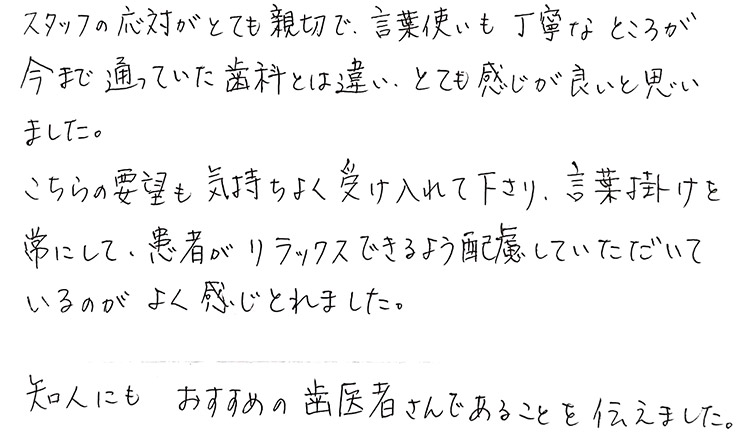 スタッフの応対がとても親切で、言葉使いも丁寧なところが
今まで通っていた歯科とは違い、とても感じが良いと思い
ました。
こちらの要望も気持ちよく受け入れて下さり、言葉掛けを
常にして、患者がリラックスできるよう配慮していただいて
いるのがよく感じとれました。
知人にも おすすめの歯医者さんであることを伝えました。